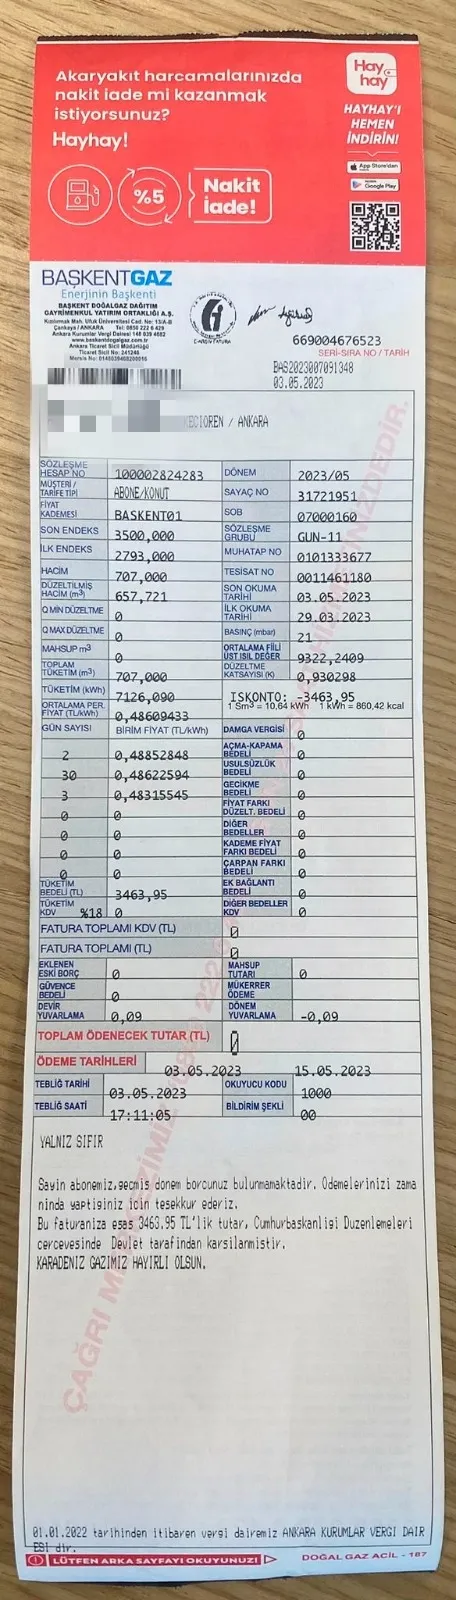 Akaryakıt harcamalarınızda
nakit iade mi kazanmak
istiyorsunuz?
Hayhay!
%5
Nakit
İade!
Hay
hay
HAYHAY'I
HEMEN
İNDİRİN!
App Store'dan
Google Play
BAŞKENTGAZ
Enerjinin Başkenti
BAŞKENT DOĞALGAZ DAĞITIM
GAYRİMENKUL YATIRIM ORTAKLIĞI A.Ş.
Kızılırmak Mah. Ufuk Üniversitesi Cad. No: 13/A-B
Çankaya / ANKARA Tel: 0850 222 6 429
Ankara Kurumlar Vergi Dairesi 148 039 4682
www.baskentdogalgaz.com.tr
Ankara Ticaret Sicil Müdürlüğü
Ticaret Sicil No: 241246
E-ARŞİV FATURA
669004676523
SERİ-SIRA NO / TARİH
BAS2023007091348
03.05.2023
KECIOREN / ANKARA
SÖZLEŞME HESAP NO 100002824283 DÖNEM 2023/05
MÜŞTERİ / TARİFE TİPİ ABONE/KONUT SAYAÇ NO 31721951
FİYAT KADEMESİ BASKENT01 SOB 07000160
SON ENDEKS 3500,000 SÖZLEŞME GRUBU GUN-11
İLK ENDEKS 2793,000 MUHATAP NO 0101333677
HACİM 707,000 TESİSAT NO 0011461180
DÜZELTİLMİŞ HACİM (m³) 657,721 SON OKUMA TARİHİ 03.05.2023
Q MİN DÜZELTME 0 İLK OKUMA TARİHİ 29.03.2023
Q MAX DÜZELTME 0 BASINÇ (mbar) 21
MAHSUP m³ 0 ORTALAMA FİİLİ ÜST ISIL DEĞER 9322,2409
TOPLAM TÜKETİM (m³) 707,000 DÜZELTME KATSAYISI (K) 0,930298
TÜKETİM (kWh) 7126,090 ISKONTO: -3463,95
1 Sm³ = 10,64 kWh 1 kWh = 860,42 kcal
ORTALAMA PER. FİYAT (TL/kWh) 0,48609433
GÜN SAYISI BİRİM FİYAT (TL/kWh) DAMGA VERGİSİ 0
2 0,48852848 AÇMA-KAPAMA BEDELİ 0
30 0,48622594 USULSÜZLÜK BEDELİ 0
3 0,48315545 GECİKME BEDELİ 0
0 0 FİYAT FARKI DÜZELT. BEDELİ 0
0 0 DİĞER BEDELLER 0
0 0 KADEME FİYAT FARKI BEDELİ 0
0 0 ÇARPAN FARKI BEDELİ 0
TÜKETİM BEDELİ (TL) 3463,95 EK BAĞLANTI BEDELİ 0
TÜKETİM KDV %18 0 DİĞER BEDELLER KDV 0
FATURA TOPLAMI KDV (TL) 0
FATURA TOPLAMI (TL) 0
EKLENEN ESKİ BORÇ 0 MAHSUP TUTARI 0
GÜVENCE BEDELİ 0 MÜKERRER ÖDEME
DEVİR YUVARLAMA 0,09 DÖNEM YUVARLAMA -0,09
TOPLAM ÖDENECEK TUTAR (TL) 0
ÖDEME TARİHLERİ 03.05.2023 15.05.2023
TEBLİĞ TARİHİ 03.05.2023 OKUYUCU KODU 1000
TEBLİĞ SAATİ 17:11:05 BİLDİRİM ŞEKLİ 00
YALNIZ SIFIR
Sayin abonemiz,gecmis donem borcunuz bulunmamaktadir. Odemelerinizi zama
ninda yaptiginiz icin tesekkur ederiz.
Bu faturaniza esas 3463.95 TL'lik tutar, Cumhurbaskanligi Duzenlemeleri
cercevesinde Devlet tarafindan karsilanmistir.
KARADENIZ GAZIMIZ HAYIRLI OLSUN.
01.01.2022 tarihinden itibaren vergi dairemiz ANKARA KURUMLAR VERGI DAIR
ESI dir.
LÜTFEN ARKA SAYFAYI OKUYUNUZ!
DOĞAL GAZ ACİL - 187